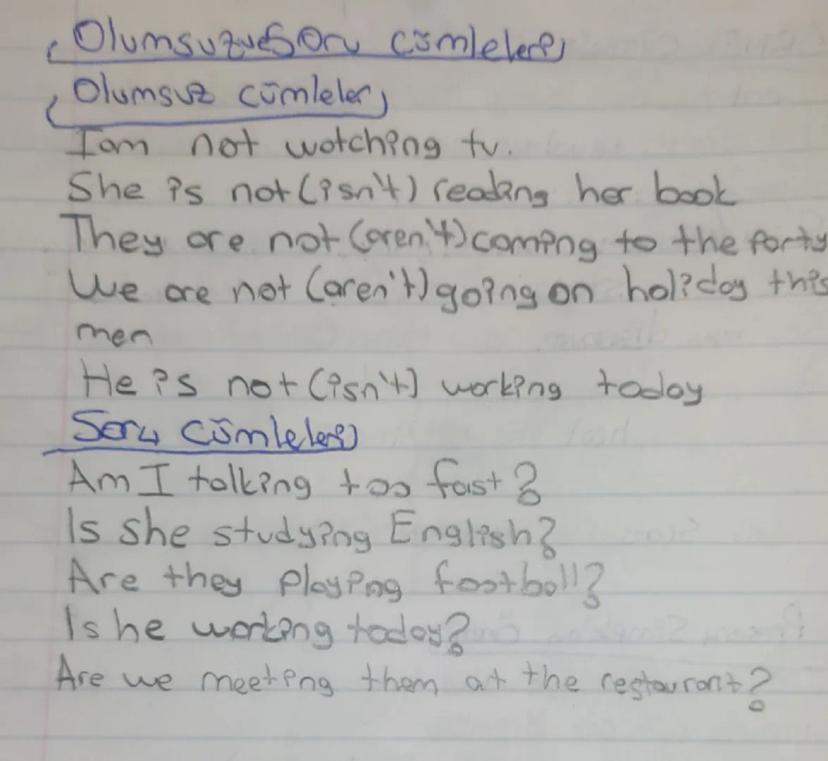 Olumsuz ve Soru cümleleri
Olumsuz cümleler
I am not watching tv.
She is not (isn't) reading her book
They are not (aren't) coming to the party
We are not (aren't) going on holiday this
men
He is not (isn't) working today
Soru cümleleri
Am I talking too fast?
Is she studying English?
Are they playing football?
Is he working today?
Are we meeting them at the restaurant?